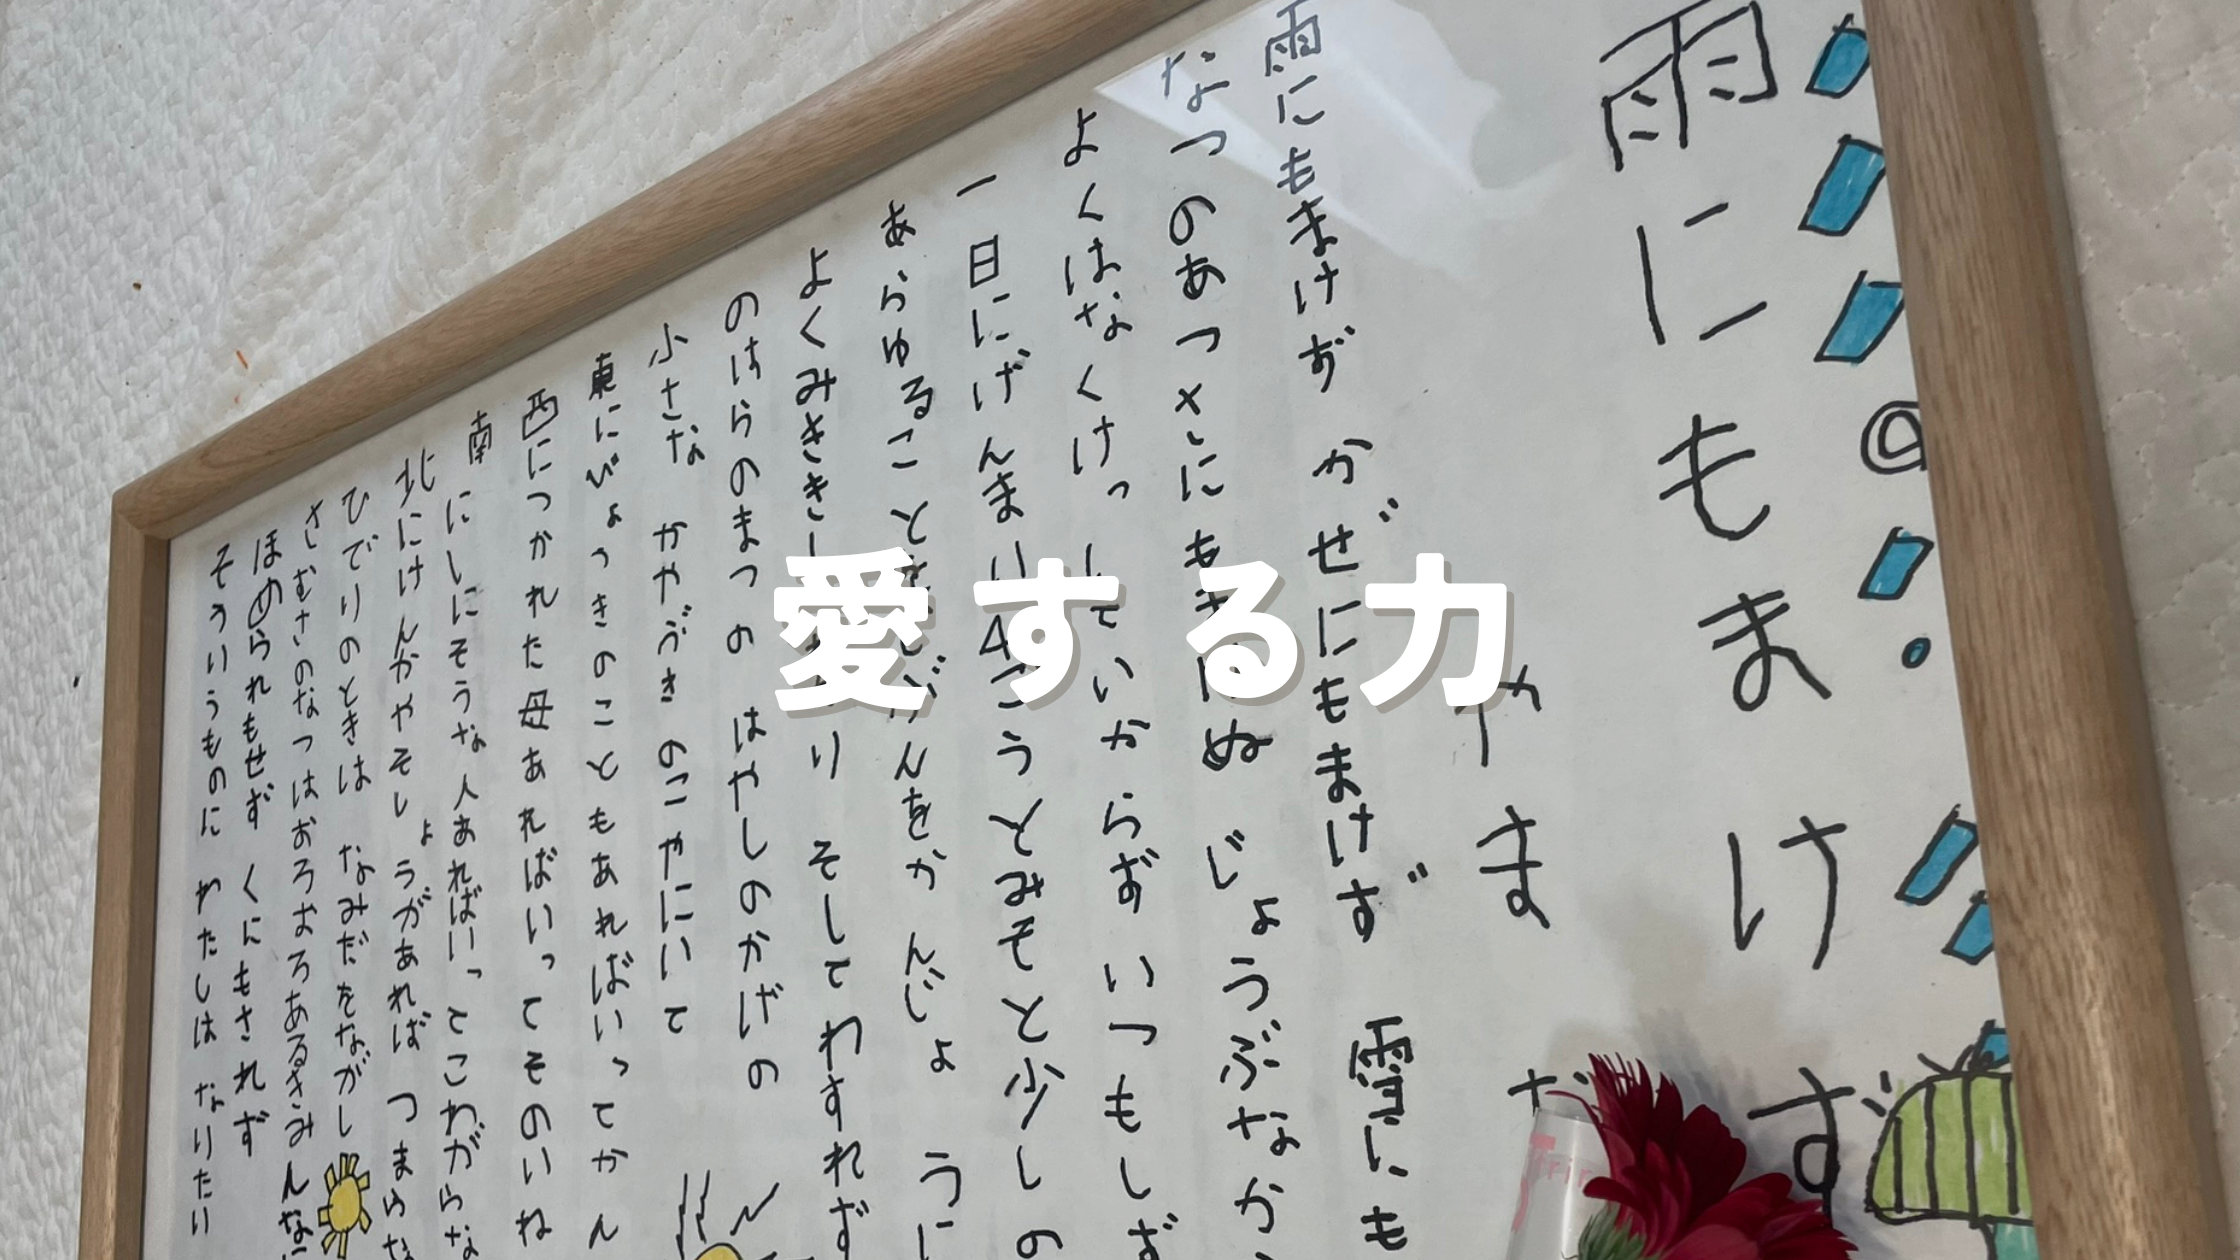 雨にもまけず
やまだ
雨にもまけず かぜにもまけず 雪にも
なつのあつさにもまけぬ じょうぶなか
よくはなくけっしていからず いつもしず
一日にげんまい4こうとみそと少しの
あらゆることをじぶんをかんじょうに
よくみききしわかり そしてわすれず
のはらのまつの はやしのかげの
小さな かやぶきのこやにいて
東にびょうきのこともあればいってかん
西につかれた母あればいってそのいね
南にしにそうな人あればいってこわがらな
北にけんかやそしょうがあれば つまらな
ひでりのときは なみだをながし
さむさのなつはおろおろあるきみんなに
ほめられもせず くにもされず
そういうものに わたしは なりたい
愛する力